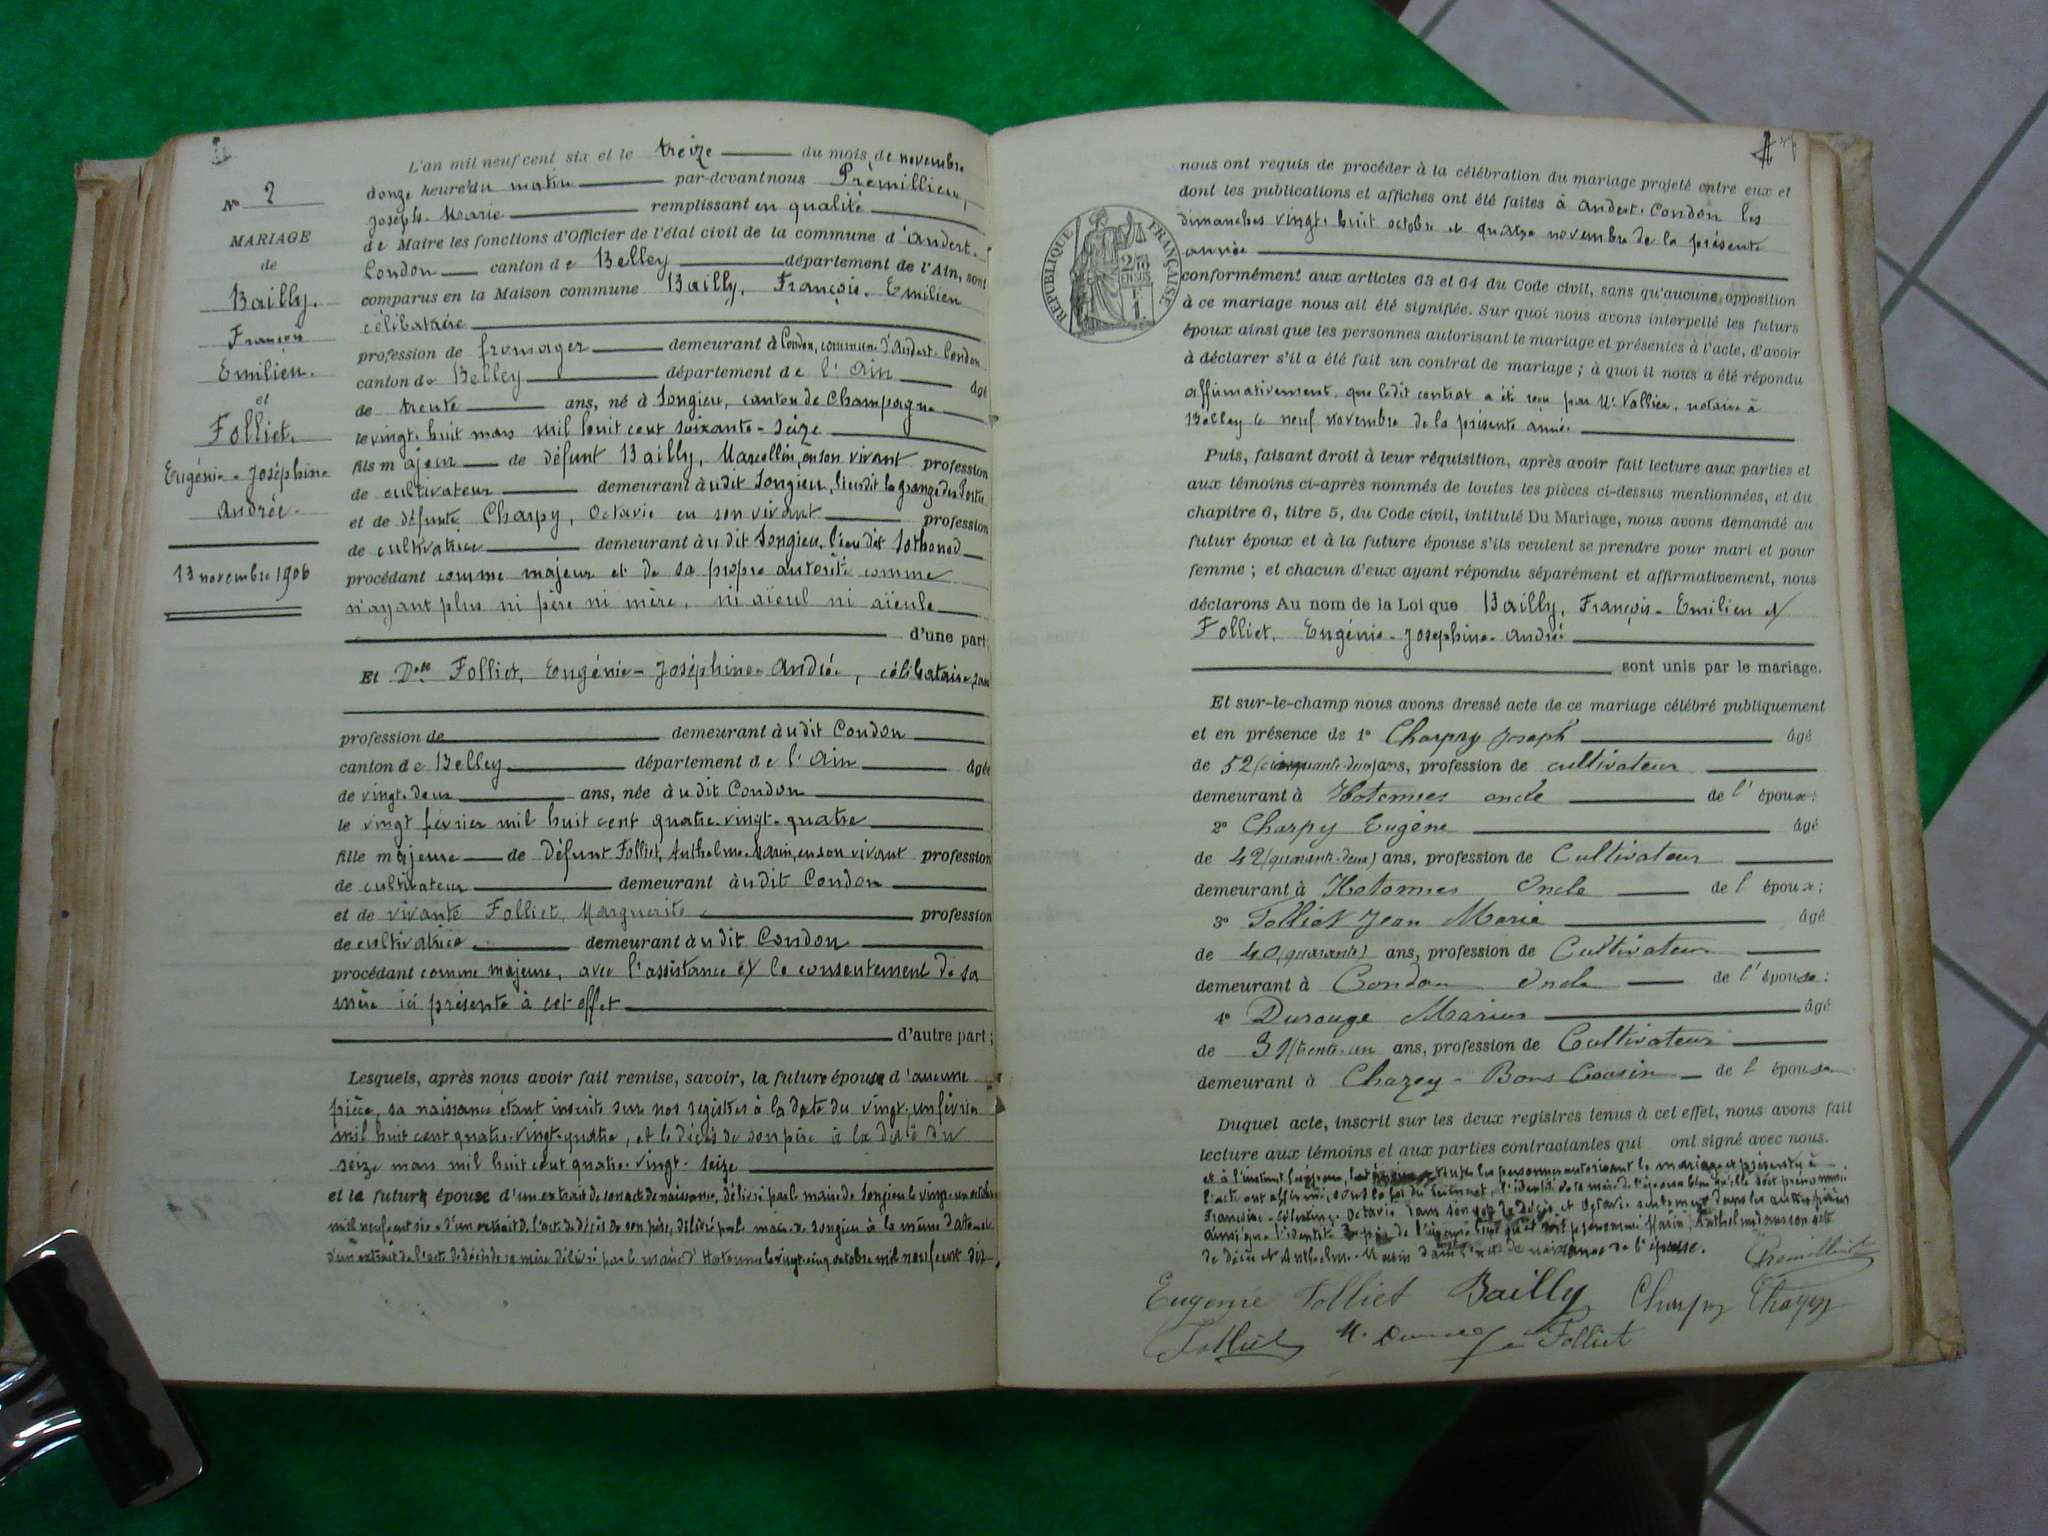 L'an mil neuf cent six et le treize du mois de novembre
N° 2
onze heure du matin par-devant nous Prémillieu,
Joseph-Marie remplissant en qualité
MARIAGE
de Maire les fonctions d'Officier de l'état civil de la commune d'Andert-
de
Condon canton de Belley département de l'Ain, sont
Bailly,
comparus en la Maison commune Bailly, François-Emilien
célibataire
François
profession de fromager demeurant à Condon, commune d'Andert-Condon
Emilien.
canton de Belley département de l'Ain âgé
et
de trente ans, né à Songieu, canton de Champagne
Folliet,
le vingt-huit mars mil huit cent soixante-seize
Eugénie-Joséphine
fils majeur de défunt Bailly, Marcellin, en son vivant profession
de cultivateur demeurant audit Songieu, lieu dit la grange des
Andrée.
et de défunte Charpy, Octavie en son vivant profession
de cultivatrice demeurant audit Songieu, lieu dit Sothonod
13 novembre 1906
procédant comme majeur et de sa propre autorité comme
n'ayant plus ni père ni mère, ni aïeul ni aïeule
d'une part
Et Delle Folliet, Eugénie-Joséphine-Andrée, célibataire, sans
profession de demeurant audit Condon
canton de Belley département de l'Ain âgée
de vingt-deux ans, née audit Condon
le vingt février mil huit cent quatre-vingt-quatre
fille majeure de défunt Folliet, Anthelme-Marin, en son vivant profession
de cultivateur demeurant audit Condon
et de vivante Folliet, Marguerite profession
de cultivatrice demeurant audit Condon
procédant comme majeure, avec l'assistance et le consentement de sa
mère ici présente à cet effet
d'autre part;
Lesquels, après nous avoir fait remise, savoir, la future épouse d'aucune
pièce, sa naissance étant inscrite sur nos registres à la date du vingt-un février
mil huit cent quatre-vingt-quatre, et le décès de son père à la date du
seize mars mil huit cent quatre-vingt-seize
et le future épouse d'un extrait de son acte de naissance, délivré par le maire de Songieu le vingt-un octobre
mil neuf cent six, d'un extrait de l'acte de décès de son père, délivré par le maire de Songieu à la même date et
d'un extrait de l'acte de décès de sa mère délivré par le maire d'Hotonnes le vingt-cinq octobre mil neuf cent six,
nous ont requis de procéder à la célébration du mariage projeté entre eux et
dont les publications et affiches ont été faites à Andert-Condon les
dimanches vingt-huit octobre et quatre novembre de la présente
année
RÉPUBLIQUE FRANÇAISE
conformément aux articles 63 et 64 du Code civil, sans qu'aucune opposition
à ce mariage nous ait été signifiée. Sur quoi nous avons interpellé les futurs
époux ainsi que les personnes autorisant le mariage et présentes à l'acte, d'avoir
à déclarer s'il a été fait un contrat de mariage; à quoi il nous a été répondu
affirmativement, que ledit contrat a été reçu par Me Vallier, notaire à
Belley le neuf novembre de la présente année.
Puis, faisant droit à leur réquisition, après avoir fait lecture aux parties et
aux témoins ci-après nommés de toutes les pièces ci-dessus mentionnées, et du
chapitre 6, titre 5, du Code civil, intitulé Du Mariage, nous avons demandé au
futur époux et à la future épouse s'ils veulent se prendre pour mari et pour
femme; et chacun d'eux ayant répondu séparément et affirmativement, nous
déclarons Au nom de la Loi que Bailly, François-Emilien et
Folliet, Eugénie-Joséphine-Andrée
sont unis par le mariage.
Et sur-le-champ nous avons dressé acte de ce mariage célébré publiquement
et en présence de 1° Charpy Joseph âgé
de 52 (cinquante-deux) ans, profession de cultivateur
demeurant à Hotonnes oncle de l'époux:
2° Charpy Eugène âgé
de 42 (quarante-deux) ans, profession de Cultivateur
demeurant à Hotonnes Oncle de l époux;
3° Folliet Jean Marie âgé
de 40 (quarante) ans, profession de Cultivateur
demeurant à Condon Oncle de l'épouse:
4° Durouge Marius âgé
de 31 (trente-un ans, profession de Cultivateur
demeurant à Chazey-Bons Cousin de l épouse
Duquel acte, inscrit sur les deux registres tenus à cet effet, nous avons fait
lecture aux témoins et aux parties contractantes qui ont signé avec nous.
et à l'instant les personnes autorisant le mariage et présentes à
l'acte ont affirmé, sous la foi du serment, l'identité de la mère de l'époux bien qu'elle soit prénommée
Françoise-Célestine-Octavie dans son acte de décès et Octavie seulement dans les autres pièces
ainsi que l'identité du père de l'épouse bien qu'il soit prénommé Marin Anthelme dans son acte
de décès et Anthelme-Marin dans l'acte de naissance de l'épouse.
Prémillieu
Eugenie Folliet Bailly Charpy Charpy
Folliet M. Durouge Folliet